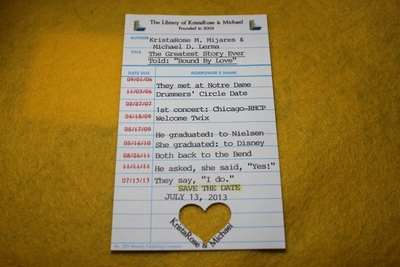 The Library of KristaRose & Michael
Founded in 2006
AUTHOR KristaRose M. Mijares &
Michael D. Lerma
TITLE The Greatest Story Ever
Told: "Bound By Love"
DATE DUE BORROWER'S NAME
09/01/06 They met at Notre Dame
11/03/06 Drummers' Circle Date
02/27/07 1st concert: Chicago-RHCP
04/18/09 Welcome Twix
05/17/09 He graduated: to Nielsen
05/16/10 She graduated: to Disney
08/26/11 Both back to the Bend
11/11/11 He asked, she said, "Yes!"
07/13/13 They say, "I do."
SAVE THE DATE
JULY 13, 2013
KristaRose & Michael